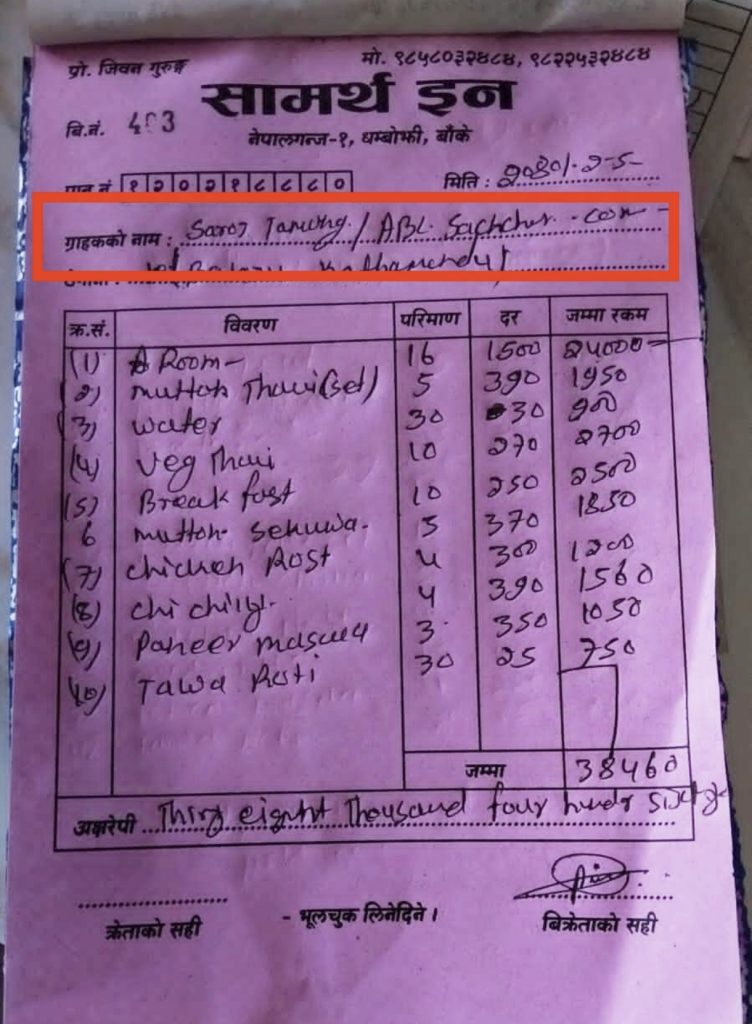 प्रो. जिवन गुरुङ्ग मो. ९८५८०३२४८४, ९८२२५३२४८४
सामर्थ इन
बि.नं. 403
नेपालगन्ज-१, धम्बोझी, बाँके
पान नं १२०२१८८८० मिति : 2080/2-5-
ग्राहकको नाम : Saroj Tamung / ABL
क्र.सं. विवरण परिमाण दर जम्मा रकम
(1) Room- 16 1500 24000-
(2) Mutton Thali(set) 5 390 1950
(3) water 30 30 900
(4) Veg Thali 10 270 2700
(5) Break fast 10 250 2500
6 Mutton Sekuwa. 5 370 1850
(7) Chicken Rost 4 300 1200
(8) Chi chilly. 4 390 1560
(9) Paneer masala 3 350 1050
10) Tawa Roti 30 25 750
जम्मा 38460
अक्षरेपी eight Thousand four hundr
क्रेताको सही - भूलचुक लिनेदिने । बिक्रेताको सही